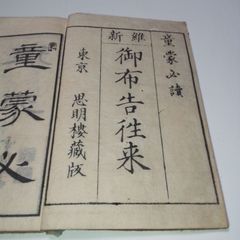 童蒙必讀
維新
御布告往来
東京 思明樓藏版
童蒙必